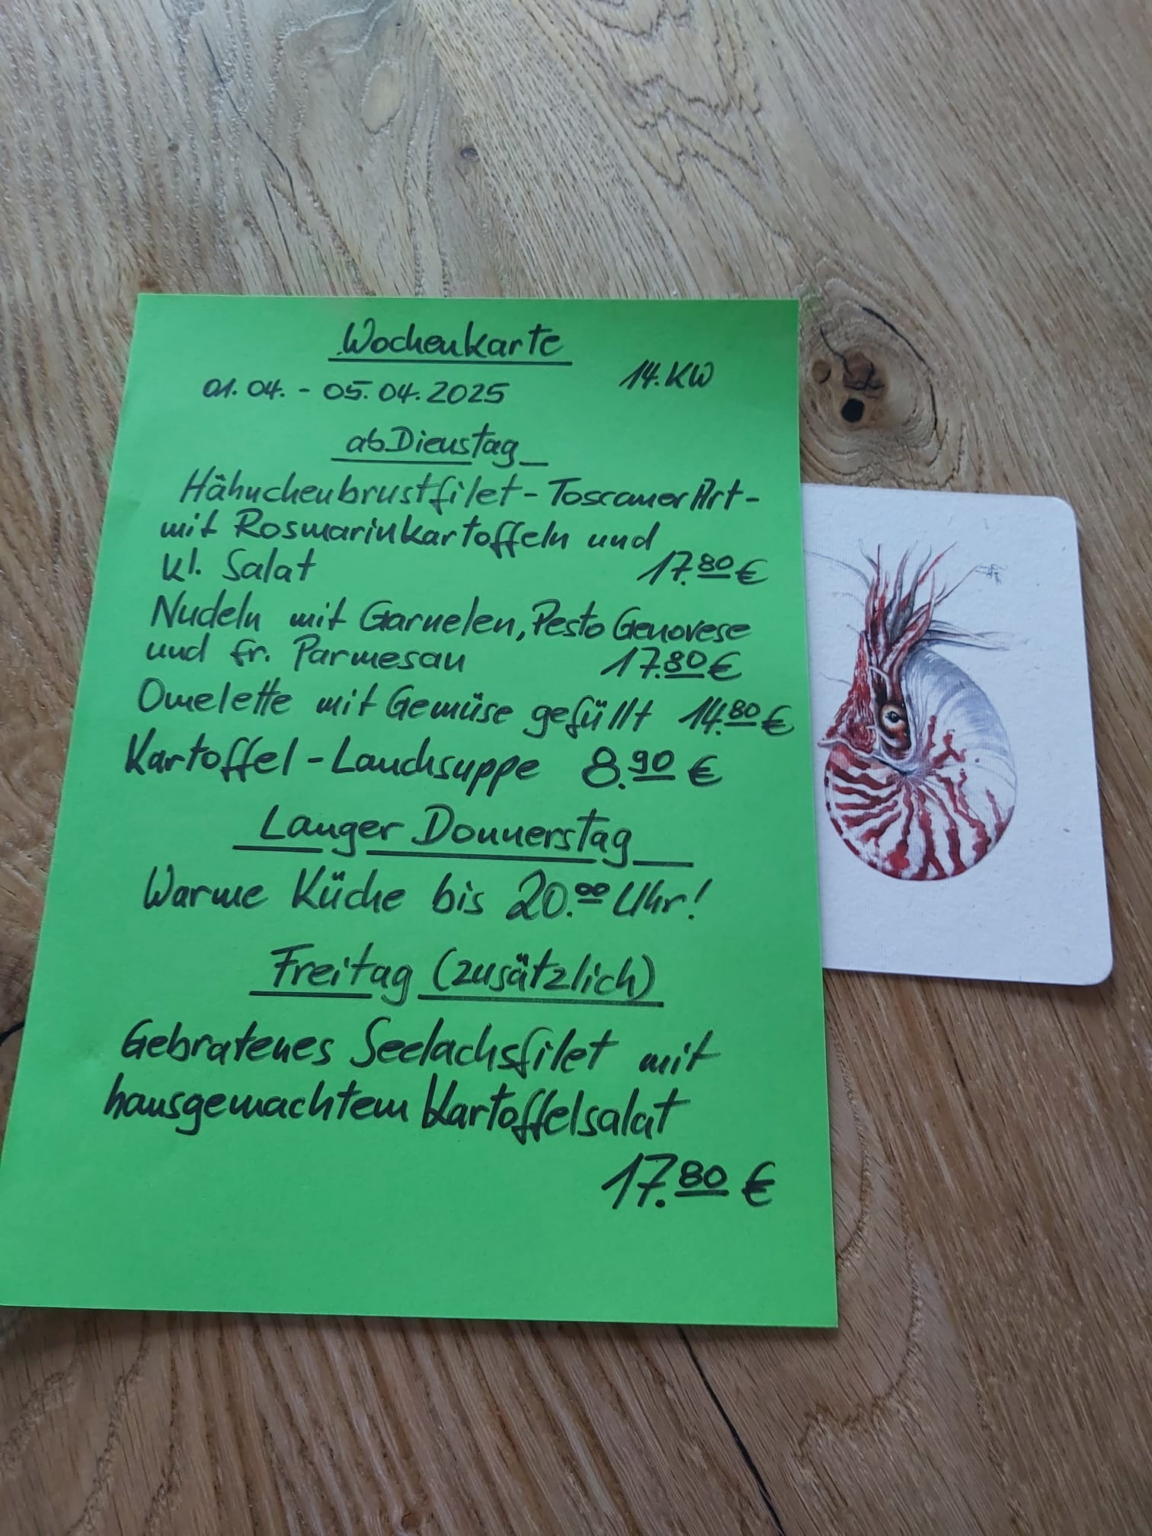 Wochenkarte
01.04. - 05.04.2025 14.KW
ab Dienstag
Hähnchenbrustfilet - Toscaner Art -
mit Rosmarinkartoffeln und
kl. Salat 17.80 €
Nudeln mit Garnelen, Pesto Genovese
und fr. Parmesan 17.80 €
Omelette mit Gemüse gefüllt 14.80 €
Kartoffel - Lauchsuppe 8.90 €
Langer Donnerstag
Warme Küche bis 20.00 Uhr!
Freitag (zusätzlich)
Gebratenes Seelachsfilet mit
hausgemachtem Kartoffelsalat
17.80 €